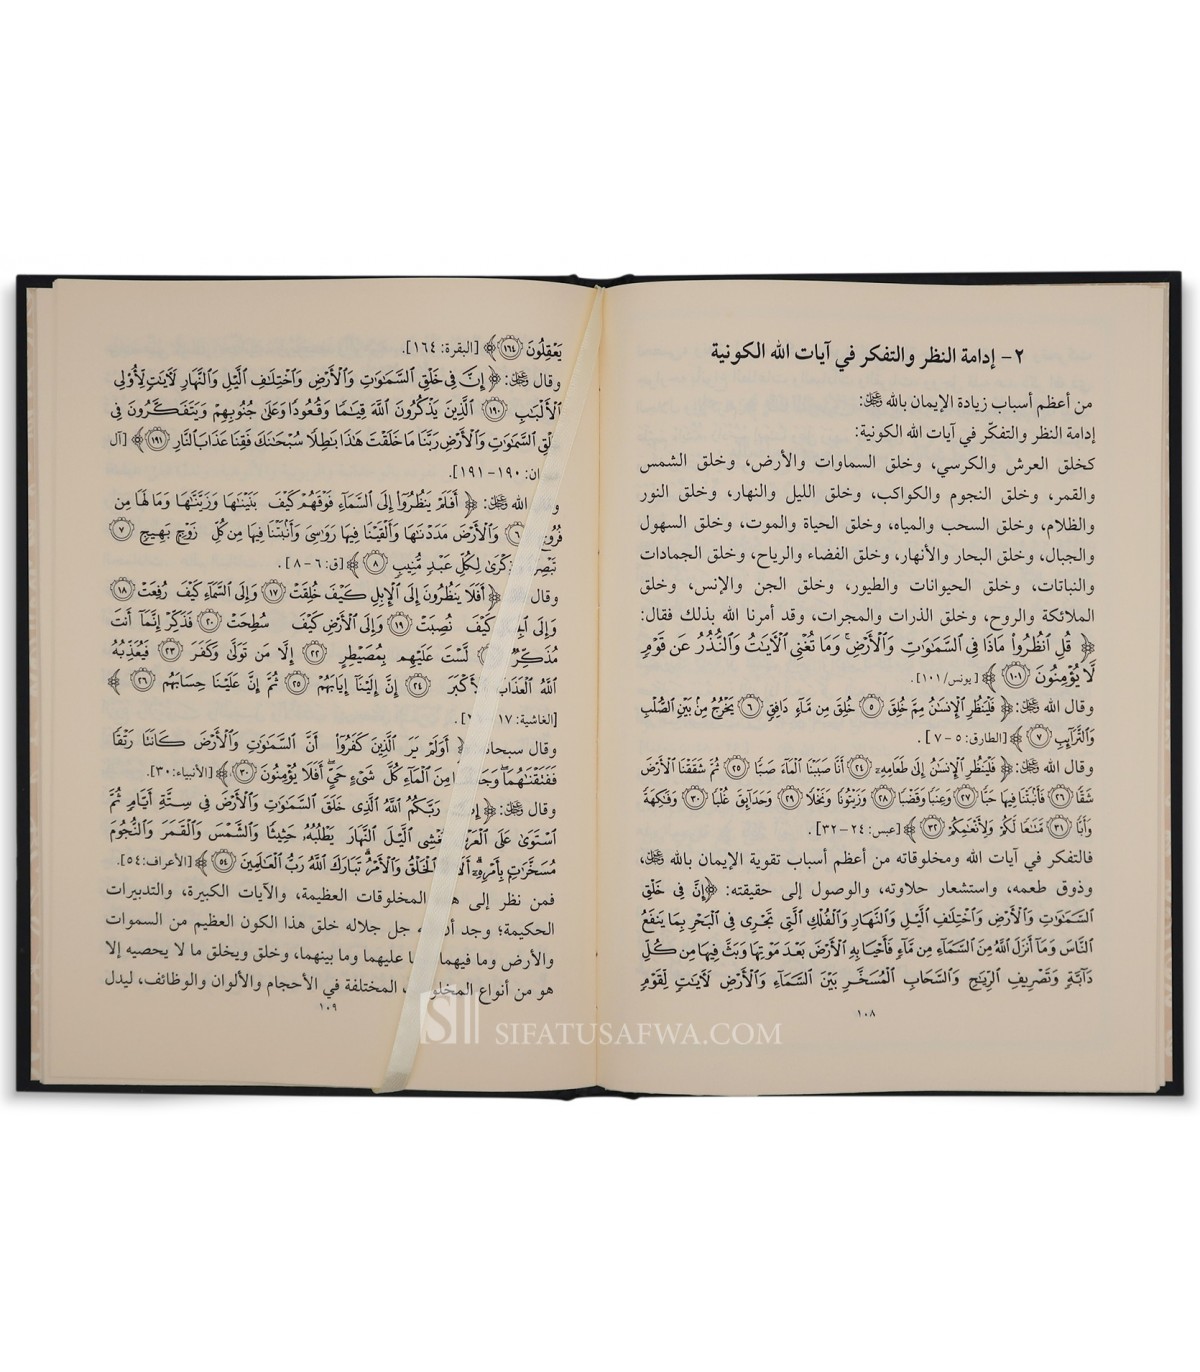 ٢- إدامة النظر والتفكر في آيات الله الكونية
من أعظم أسباب زيادة الإيمان بالله ﷻ:
إدامة النظر والتفكّر في آيات الله الكونية:
كخلق العرش والكرسي، وخلق السماوات والأرض، وخلق الشمس
والقمر، وخلق النجوم والكواكب، وخلق الليل والنهار، وخلق النور
والظلام، وخلق السحب والمياه، وخلق الحياة والموت، وخلق السهول
والجبال، وخلق البحار والأنهار، وخلق الفضاء والرياح، وخلق الجمادات
والنباتات، وخلق الحيوانات والطيور، وخلق الجن والإنس، وخلق
الملائكة والروح، وخلق الذرات والمجرات، وقد أمرنا الله بذلك فقال:
﴿ قُلِ ٱنظُرُوا۟ مَاذَا فِى ٱلسَّمَـٰوَٰتِ وَٱلْأَرْضِ ۚ وَمَا تُغْنِى ٱلْـَٔايَـٰتُ وَٱلنُّذُرُ عَن قَوْمٍ
لَّا يُؤْمِنُونَ ١٠١ ﴾ [يونس/١٠١].
وقال الله ﷻ: ﴿ فَلْيَنظُرِ ٱلْإِنسَـٰنُ مِمَّ خُلِقَ ٥ خُلِقَ مِن مَّآءٍ دَافِقٍ ٦ يَخْرُجُ مِنۢ بَيْنِ ٱلصُّلْبِ
وَٱلتَّرَآئِبِ ٧ ﴾ [الطارق: ٥-٧].
وقال الله ﷻ: ﴿ فَلْيَنظُرِ ٱلْإِنسَـٰنُ إِلَىٰ طَعَامِهِۦٓ ٢٤ أَنَّا صَبَبْنَا ٱلْمَآءَ صَبًّا ٢٥ ثُمَّ شَقَقْنَا ٱلْأَرْضَ
شَقًّا ٢٦ فَأَنۢبَتْنَا فِيهَا حَبًّا ٢٧ وَعِنَبًا وَقَضْبًا ٢٨ وَزَيْتُونًا وَنَخْلًا ٢٩ وَحَدَآئِقَ غُلْبًا ٣٠ وَفَـٰكِهَةً
وَأَبًّا ٣١ مَّتَـٰعًا لَّكُمْ وَلِأَنْعَـٰمِكُمْ ٣٢ ﴾ [عبس: ٢٤-٣٢].
فالتفكر في آيات الله ومخلوقاته من أعظم أسباب تقوية الإيمان بالله ﷻ،
وذوق طعمه، واستشعار حلاوته، والوصول إلى حقيقته: ﴿إِنَّ فِى خَلْقِ
ٱلسَّمَـٰوَٰتِ وَٱلْأَرْضِ وَٱخْتِلَـٰفِ ٱلَّيْلِ وَٱلنَّهَارِ وَٱلْفُلْكِ ٱلَّتِى تَجْرِى فِى ٱلْبَحْرِ بِمَا يَنفَعُ
ٱلنَّاسَ وَمَآ أَنزَلَ ٱللَّهُ مِنَ ٱلسَّمَآءِ مِن مَّآءٍ فَأَحْيَا بِهِ ٱلْأَرْضَ بَعْدَ مَوْتِهَا وَبَثَّ فِيهَا مِن كُلِّ
دَآبَّةٍ وَتَصْرِيفِ ٱلرِّيَـٰحِ وَٱلسَّحَابِ ٱلْمُسَخَّرِ بَيْنَ ٱلسَّمَآءِ وَٱلْأَرْضِ لَـَٔايَـٰتٍ لِّقَوْمٍ
١٠٨
يَعْقِلُونَ ١٦٤ ﴾ [البقرة: ١٦٤].
وقال ﷻ: ﴿ إِنَّ فِى خَلْقِ ٱلسَّمَـٰوَٰتِ وَٱلْأَرْضِ وَٱخْتِلَـٰفِ ٱلَّيْلِ وَٱلنَّهَارِ لَـَٔايَـٰتٍ لِّأُو۟لِى
ٱلْأَلْبَـٰبِ ١٩٠ ٱلَّذِينَ يَذْكُرُونَ ٱللَّهَ قِيَـٰمًا وَقُعُودًا وَعَلَىٰ جُنُوبِهِمْ وَيَتَفَكَّرُونَ فِى
لْقِ ٱلسَّمَـٰوَٰتِ وَٱلْأَرْضِ رَبَّنَا مَا خَلَقْتَ هَـٰذَا بَـٰطِلًا سُبْحَـٰنَكَ فَقِنَا عَذَابَ ٱلنَّارِ ١٩١ ﴾ [آل
ان: ١٩٠-١٩١].
و الله ﷻ: ﴿ أَفَلَمْ يَنظُرُوٓا۟ إِلَى ٱلسَّمَآءِ فَوْقَهُمْ كَيْفَ بَنَيْنَـٰهَا وَزَيَّنَّـٰهَا وَمَا لَهَا مِن
فُرُوجٍ ٦ وَٱلْأَرْضَ مَدَدْنَـٰهَا وَأَلْقَيْنَا فِيهَا رَوَٰسِىَ وَأَنۢبَتْنَا فِيهَا مِن كُلِّ زَوْجٍۭ بَهِيجٍ ٧
تَبْصِرَةً وَذِكْرَىٰ لِكُلِّ عَبْدٍ مُّنِيبٍ ٨ ﴾ [ق: ٦-٨].
وقال الله ﷻ: ﴿ أَفَلَا يَنظُرُونَ إِلَى ٱلْإِبِلِ كَيْفَ خُلِقَتْ ١٧ وَإِلَى ٱلسَّمَآءِ كَيْفَ رُفِعَتْ ١٨
وَإِلَى ٱلْجِبَالِ كَيْفَ نُصِبَتْ ١٩ وَإِلَى ٱلْأَرْضِ كَيْفَ سُطِحَتْ ٢٠ فَذَكِّرْ إِنَّمَآ أَنتَ
مُذَكِّرٌ لَّسْتَ عَلَيْهِم بِمُصَيْطِرٍ ٢٢ إِلَّا مَن تَوَلَّىٰ وَكَفَرَ ٢٣ فَيُعَذِّبُهُ
ٱللَّهُ ٱلْعَذَابَ ٱلْأَكْبَرَ ٢٤ إِنَّ إِلَيْنَآ إِيَابَهُمْ ٢٥ ثُمَّ إِنَّ عَلَيْنَا حِسَابَهُم ٢٦ ﴾
[الغاشية: ١٧-٢٦].
وقال سبحانه: ﴿ أَوَلَمْ يَرَ ٱلَّذِينَ كَفَرُوٓا۟ أَنَّ ٱلسَّمَـٰوَٰتِ وَٱلْأَرْضَ كَانَتَا رَتْقًا
فَفَتَقْنَـٰهُمَا ۖ وَجَعَلْنَا مِنَ ٱلْمَآءِ كُلَّ شَىْءٍ حَىٍّ ۖ أَفَلَا يُؤْمِنُونَ ٣٠ ﴾ [الأنبياء: ٣٠].
وقال ﷻ: ﴿ إِنَّ رَبَّكُمُ ٱللَّهُ ٱلَّذِى خَلَقَ ٱلسَّمَـٰوَٰتِ وَٱلْأَرْضَ فِى سِتَّةِ أَيَّامٍ ثُمَّ
ٱسْتَوَىٰ عَلَى ٱلْعَرْشِ يُغْشِى ٱلَّيْلَ ٱلنَّهَارَ يَطْلُبُهُۥ حَثِيثًا وَٱلشَّمْسَ وَٱلْقَمَرَ وَٱلنُّجُومَ
مُسَخَّرَٰتٍۭ بِأَمْرِهِۦٓ ۗ أَلَا لَهُ ٱلْخَلْقُ وَٱلْأَمْرُ ۗ تَبَارَكَ ٱللَّهُ رَبُّ ٱلْعَـٰلَمِينَ ٥٤ ﴾ [الأعراف: ٥٤].
فمن نظر إلى هذه المخلوقات العظيمة، والآيات الكبيرة، والتدبيرات
الحكيمة؛ وجد أن الله جل جلاله خلق هذا الكون العظيم من السموات
والأرض وما فيهما وما عليهما وما بينهما، وخلق ويخلق ما لا يحصيه إلا
هو من أنواع المخلوقات المختلفة في الأحجام والألوان والوظائف، ليدل
١٠٩
SIFATUSAFWA.COM